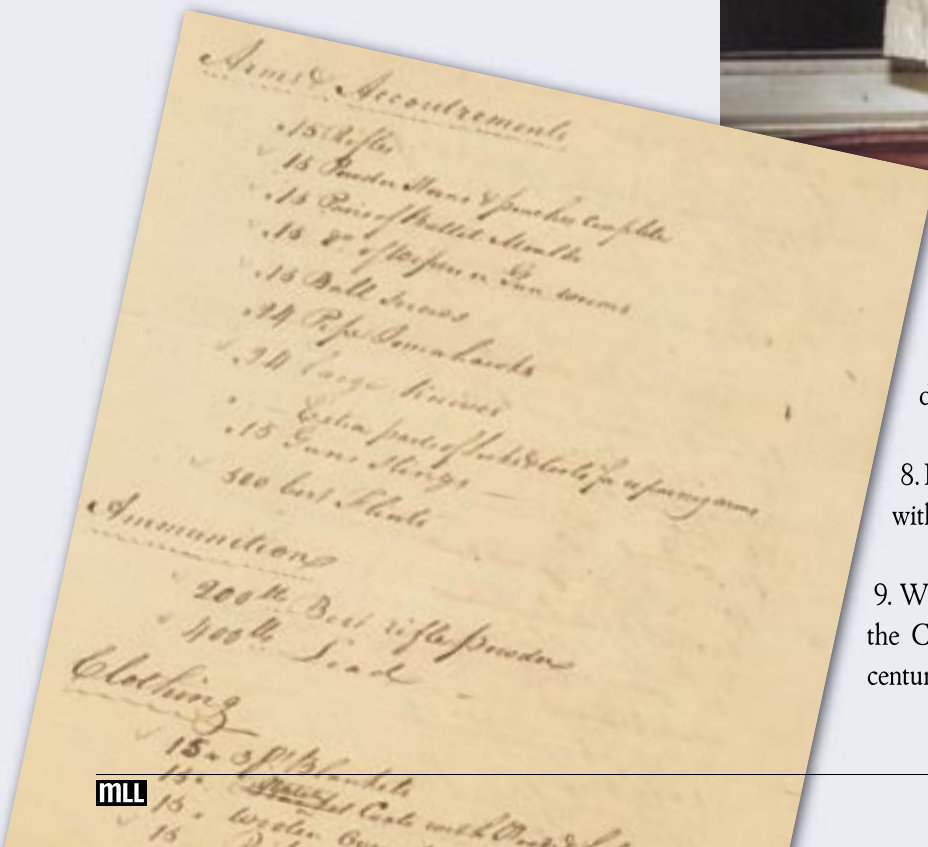 Arms & Accoutrements
15 Rifles
15 Powder Horns & pouches complete
15 Pairs of Bullet Moulds
15 do of Wipers or Gun worms
15 Ball Screws
24 Pipe Tomahawks
24 large knives
Extra parts of Locks & tools for repairing arms
15 Guns Slings
500 best Flints
Ammunition
200 lbs Best rifle powder
400 lbs Lead
Clothing
15 3 pt Blankets
15 Coats with
15 woolen
15
8.
with
9. W
the C
centur
MLL